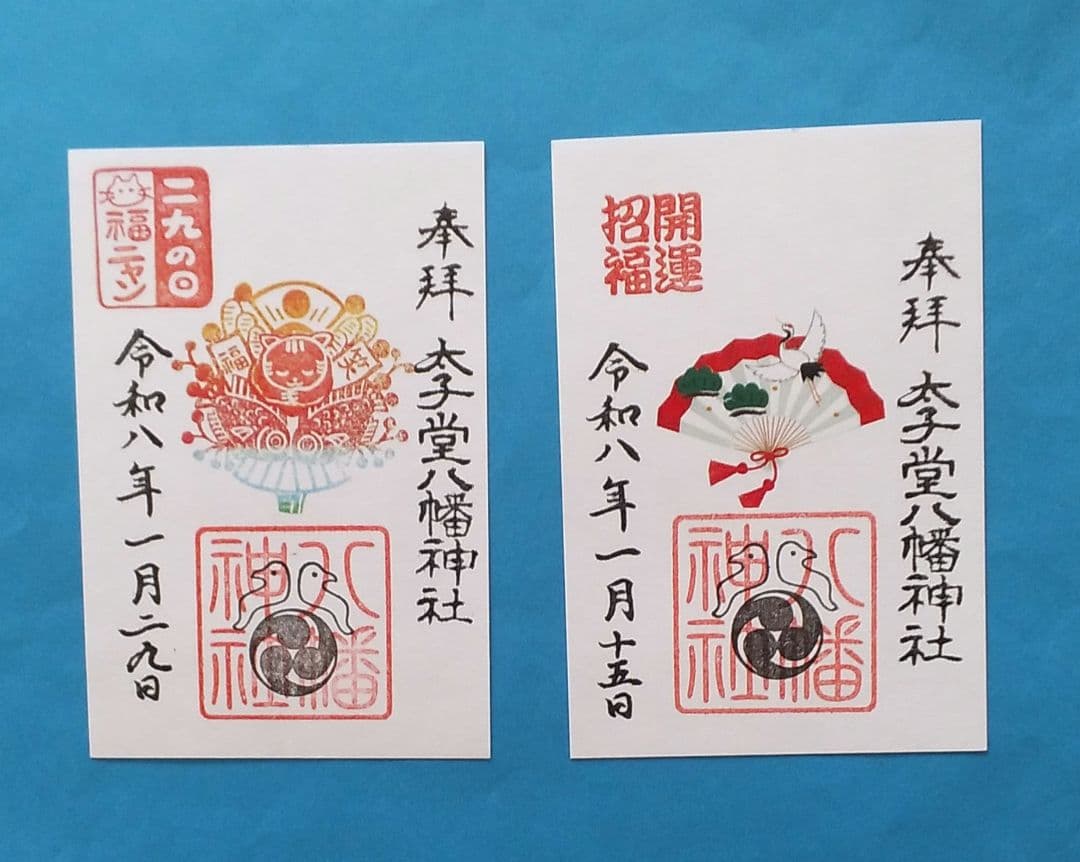 奉拝
太子堂八幡神社
二九の日
福ニャン
福
笑
令和八年一月二九日
八幡
神社
奉拝
太子堂八幡神社
開運
招福
令和八年一月十五日
八幡
神社